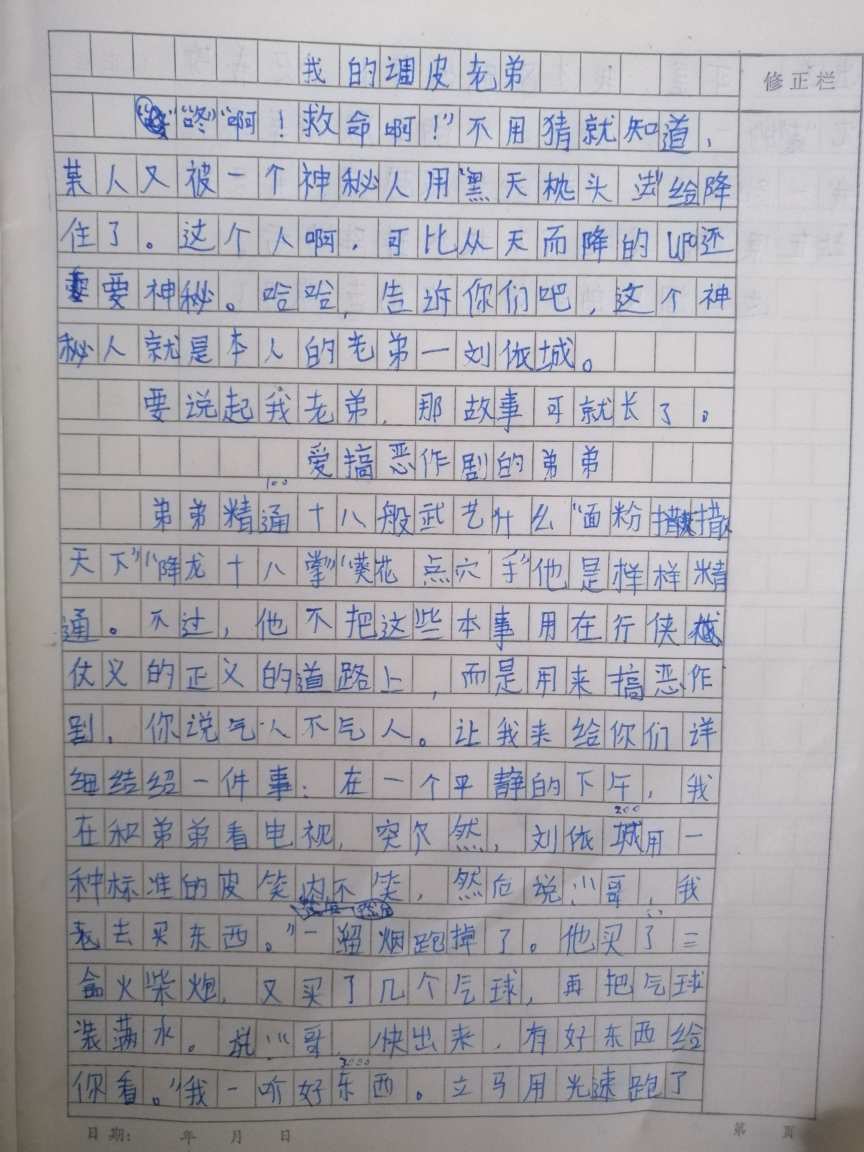 修正栏
我的调皮老弟
“咚”“啊！救命啊！”不用猜就知道，
某人又被一个神秘人用“黑天枕头法”给降
住了。这个人啊，可比从天而降的UFO还
要神秘。哈哈，告诉你们吧，这个神
秘人就是本人的老弟一刘依城。
要说起我老弟，那故事可就长了。
爱搞恶作剧的弟弟
100
弟弟精通十八般武艺什么“面粉撒
天下”“降龙十八掌”“葵花点穴手”他是样样精
通。不过，他不把这些本事用在行侠
仗义的正义的道路上，而是用来搞恶作
剧，你说气人不气人。让我来给你们详
细结绍一件事：在一个平静的下午，我
200
在和弟弟看电视，突尔然，刘依城用一
种标准的皮笑肉不笑，然后说：“哥，我
去买东西。”一溜烟跑掉了。他买了三
盒火柴炮，又买了几个气球，再把气球
装满水。说：“哥，快出来，有好东西给
你看。”我一听好东西。立马用光速跑了
日期： 年 月 日
第 页